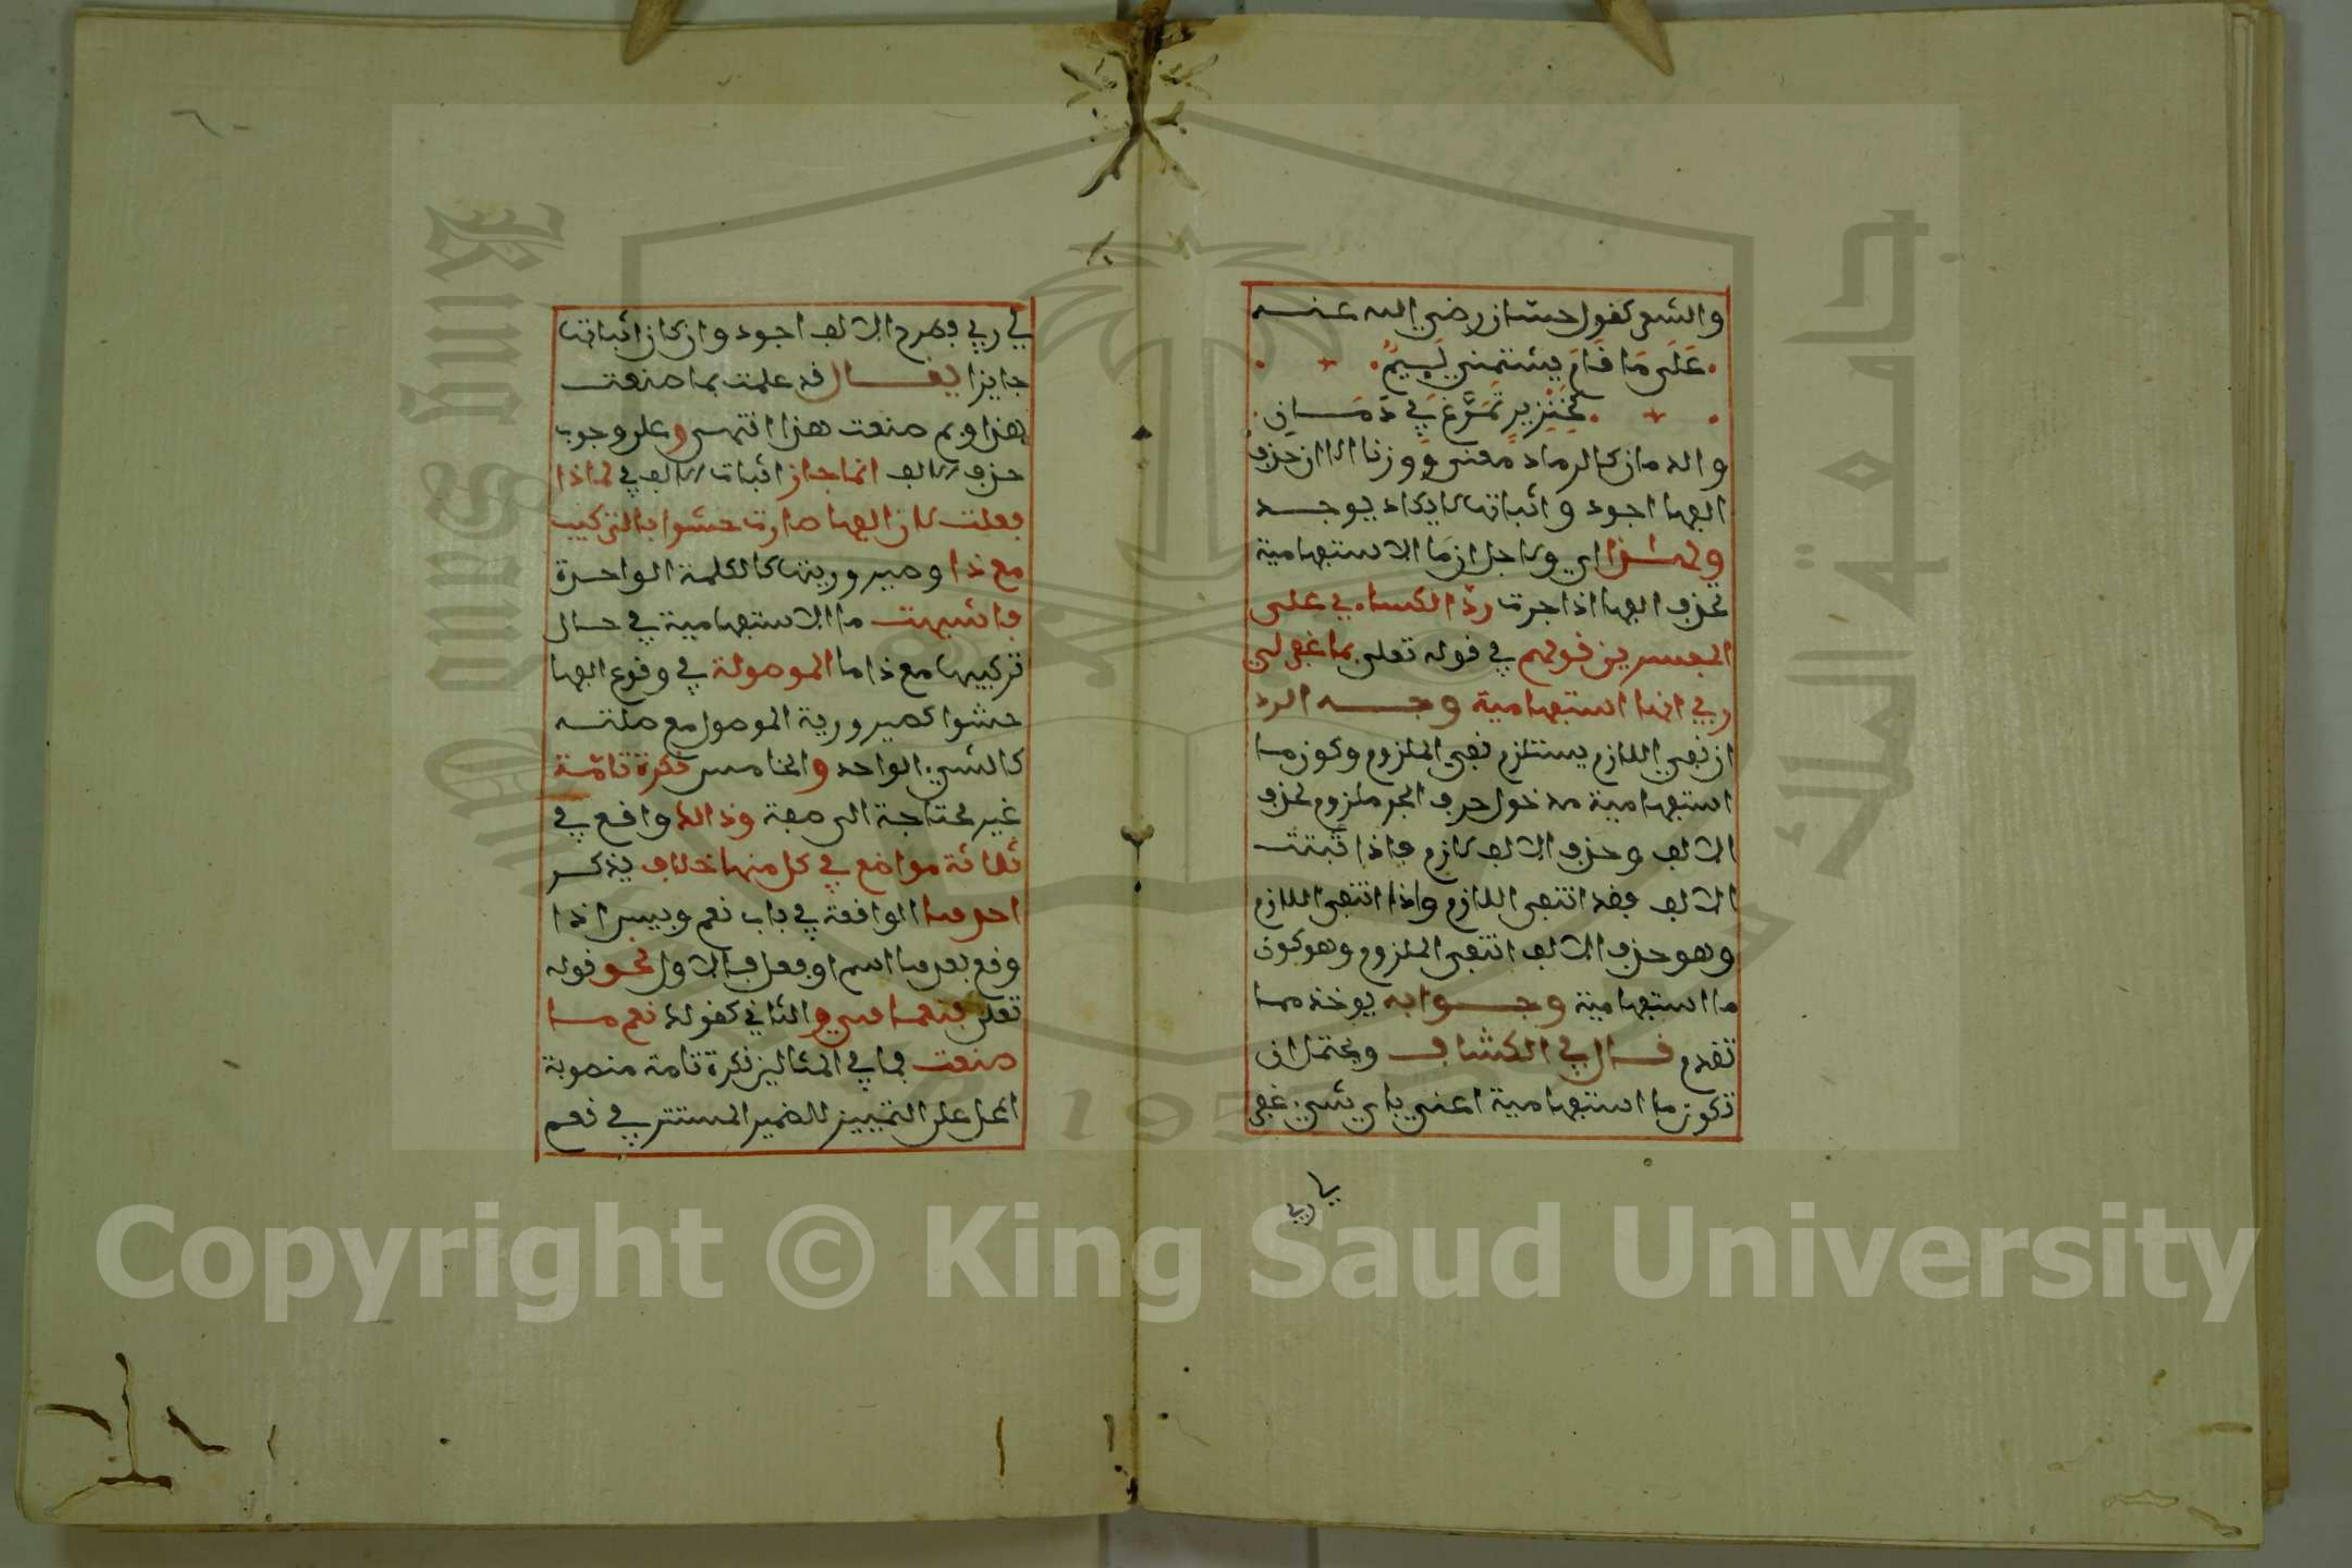 والشعر كقول حسان رضي الله عنه
على ما قام يشتمني لئيم
كخنزير تمرغ في دمان
والدمان كالرماد معنى ووزنا الا ان حذف
الفها اجود واثباتها لا يكاد يوجد
ولهذا اي ولاجل ان ما الاستفهامية
تحذف الفها اذا جرت رد الكساءي على
المفسرين قولهم في قوله تعلى بما غفر لي
ربي انها استفهامية وجه الرد
ان نفي اللازم يستلزم نفي الملزوم وكون ما
استفهامية مدخول حرف الجر ملزوم لحذف
الالف وحذف الالف لازم فاذا ثبتت
الالف فقد انتفى اللازم واذا انتفى اللازم
وهو حذف الالف انتفى الملزوم وهو كون
ما استفهامية وجوابه يوخذ مما
تقدم قال في الكشاف ويحتمل ان
تكون ما استفهامية اعني باي شيء غفر
لي ربي
لي ربي فطرح الالف اجود وان كان اثباتها
جايزا يقال قد علمت بما صنعت
هذا وبم صنعت هذا انتهى وعلى وجوب
حذف الالف انما جاز اثبات الالف في لماذا
فعلت لان الفها صارت حشوا بالتركيب
مع ذا وصيرورتها كالكلمة الواحدة
فاشبهت ما الاستفهامية في حال
تركيبها مع ذا ما الموصولة في وقوع الفها
حشوا لصيرورية الموصول مع صلته
كالشيء الواحد والخامس نكرة تامة
غير محتاجة الى صفة وذالك واقع في
ثلاثة مواضع في كل منها خلاف يذكر
احدها الواقعة في باب نعم وبيس اذا
وقع بعدها اسم او فعل فالاول نحو قوله
تعلى فنعما هي والثاني كقولك نعم ما
صنعت فما في المثالين نكرة تامة منصوبة
المحل على التمييز للضمير المستتر في نعم
Copyright © King Saud University
King Saud
جامعة الملك
195